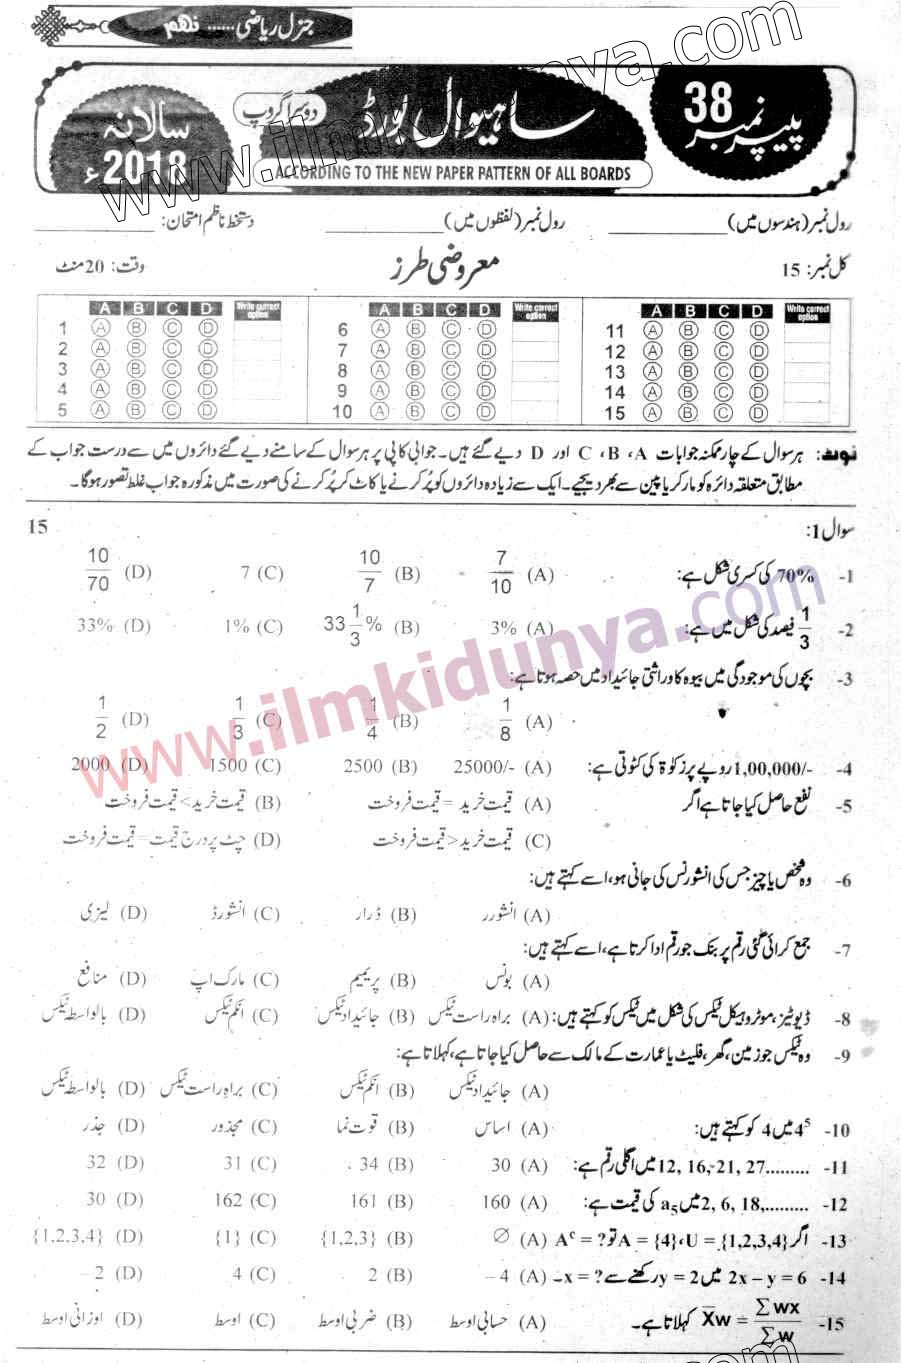 جنرل ریاضی ...... نہم
پیپر نمبر 38
ساہیوال بورڈ
دوسرا گروپ
سالانہ 2018ء
ACCORDING TO THE NEW PAPER PATTERN OF ALL BOARDS
رول نمبر (ہندسوں میں) ____________ رول نمبر (لفظوں میں) ____________ دستخط ناظم امتحان: ____________
کل نمبر: 15 معروضی طرز وقت: 20 منٹ
A B C D Write correct option A B C D Write correct option A B C D Write correct option
1 A B C D 6 A B C D 11 A B C D
2 A B C D 7 A B C D 12 A B C D
3 A B C D 8 A B C D 13 A B C D
4 A B C D 9 A B C D 14 A B C D
5 A B C D 10 A B C D 15 A B C D
نوٹ: ہر سوال کے چار ممکنہ جوابات A ،B ،C اور D دیے گئے ہیں۔ جوابی کاپی پر ہر سوال کے سامنے دیے گئے دائروں میں سے درست جواب کے
مطابق متعلقہ دائرہ کو مارکر یا پین سے بھر دیجیے۔ ایک سے زیادہ دائروں کو پُر کرنے یا کاٹ کر پُر کرنے کی صورت میں مذکورہ جواب غلط تصور ہوگا۔
سوال 1: 15
1- 70% کی کسری شکل ہے: (A) 7/10 (B) 10/7 (C) 7 (D) 10/70
2- 1/3 فیصد کی شکل میں ہے: (A) 3% (B) 33 1/3 % (C) 1% (D) 33%
3- بچوں کی موجودگی میں بیوہ کا وراثتی جائیداد میں حصہ ہوتا ہے:
(A) 1/8 (B) 1/4 (C) 1/3 (D) 1/2
4- 1,00,000/- روپے پر زکوٰۃ کی کٹوتی ہے: (A) 25000/- (B) 2500 (C) 1500 (D) 2000
5- نفع حاصل کیا جاتا ہے اگر (A) قیمت خرید = قیمت فروخت (B) قیمت خرید > قیمت فروخت
(C) قیمت خرید < قیمت فروخت (D) چٹ پر درج قیمت = قیمت فروخت
6- وہ شخص یا چیز جس کی انشورنس کی جانی ہو، اسے کہتے ہیں:
(A) انشورر (B) ڈرار (C) انشورڈ (D) لیزی
7- جمع کرائی گئی رقم پر بنک جو رقم ادا کرتا ہے، اسے کہتے ہیں:
(A) بونس (B) پریمیم (C) مارک اپ (D) منافع
8- ڈیوٹیز، موٹر وہیکل ٹیکس کی شکل میں ٹیکس کو کہتے ہیں: (A) براہ راست ٹیکس (B) جائیداد ٹیکس (C) انکم ٹیکس (D) بالواسطہ ٹیکس
9- وہ ٹیکس جو زمین، گھر، فلیٹ یا عمارت کے مالک سے حاصل کیا جاتا ہے، کہلاتا ہے:
(A) جائیداد ٹیکس (B) انکم ٹیکس (C) براہ راست ٹیکس (D) بالواسطہ ٹیکس
10- 4⁵ میں 4 کو کہتے ہیں: (A) اساس (B) قوت نما (C) مجذور (D) جذر
11- 12, 16, 21, 27......... میں اگلی رقم ہے: (A) 30 (B) 34 (C) 31 (D) 32
12- 2, 6, 18,......... میں a₅ کی قیمت ہے: (A) 160 (B) 161 (C) 162 (D) 30
13- اگر U = {1,2,3,4}، A = {4} تو Aᶜ = ? (A) ∅ (B) {1,2,3} (C) {1} (D) {1,2,3,4}
14- 2x – y = 6 میں y = 2 رکھنے سے x = ?۔ (A) – 4 (B) 2 (C) 4 (D) – 2
15- X̄w = ∑wx/∑w کہلاتا ہے۔ (A) حسابی اوسط (B) ضربی اوسط (C) اوسط (D) اوزانی اوسط
www.ilmkidunya.com
www.ilmkidunya.com